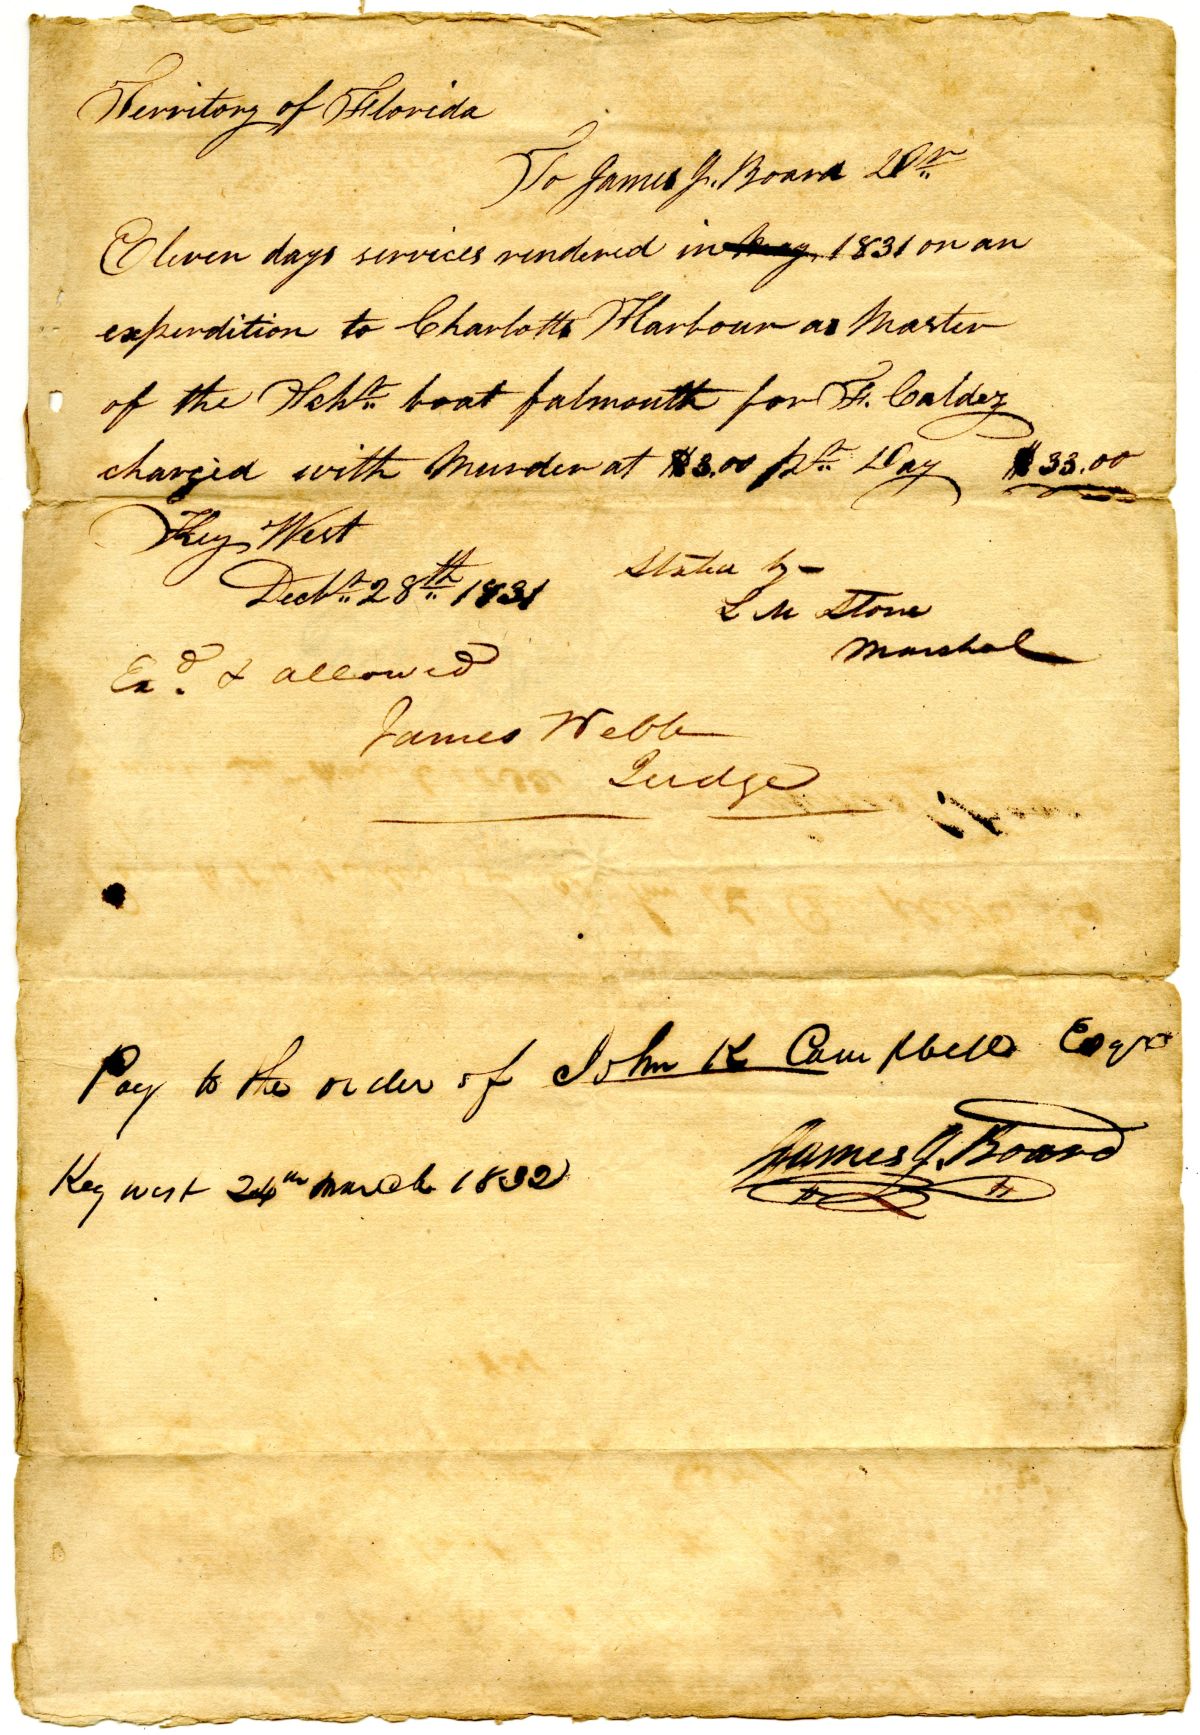 Territory of Florida
To James J. Board Dr
Eleven days services rendered in May, 1831 on an
experdition to Charlotte Harbour as Master
of the boat falmouth for F. Caldez
charged with Murder at $3.00 pr Day $33.00
Key West
Decbr 28th 1831
Stated by
L M Stone
Marshal
Exd. & allowed
James Webb
Judge
Pay to the order of John K Campbell Esqr
James J. Board
Key west 24th March 1832